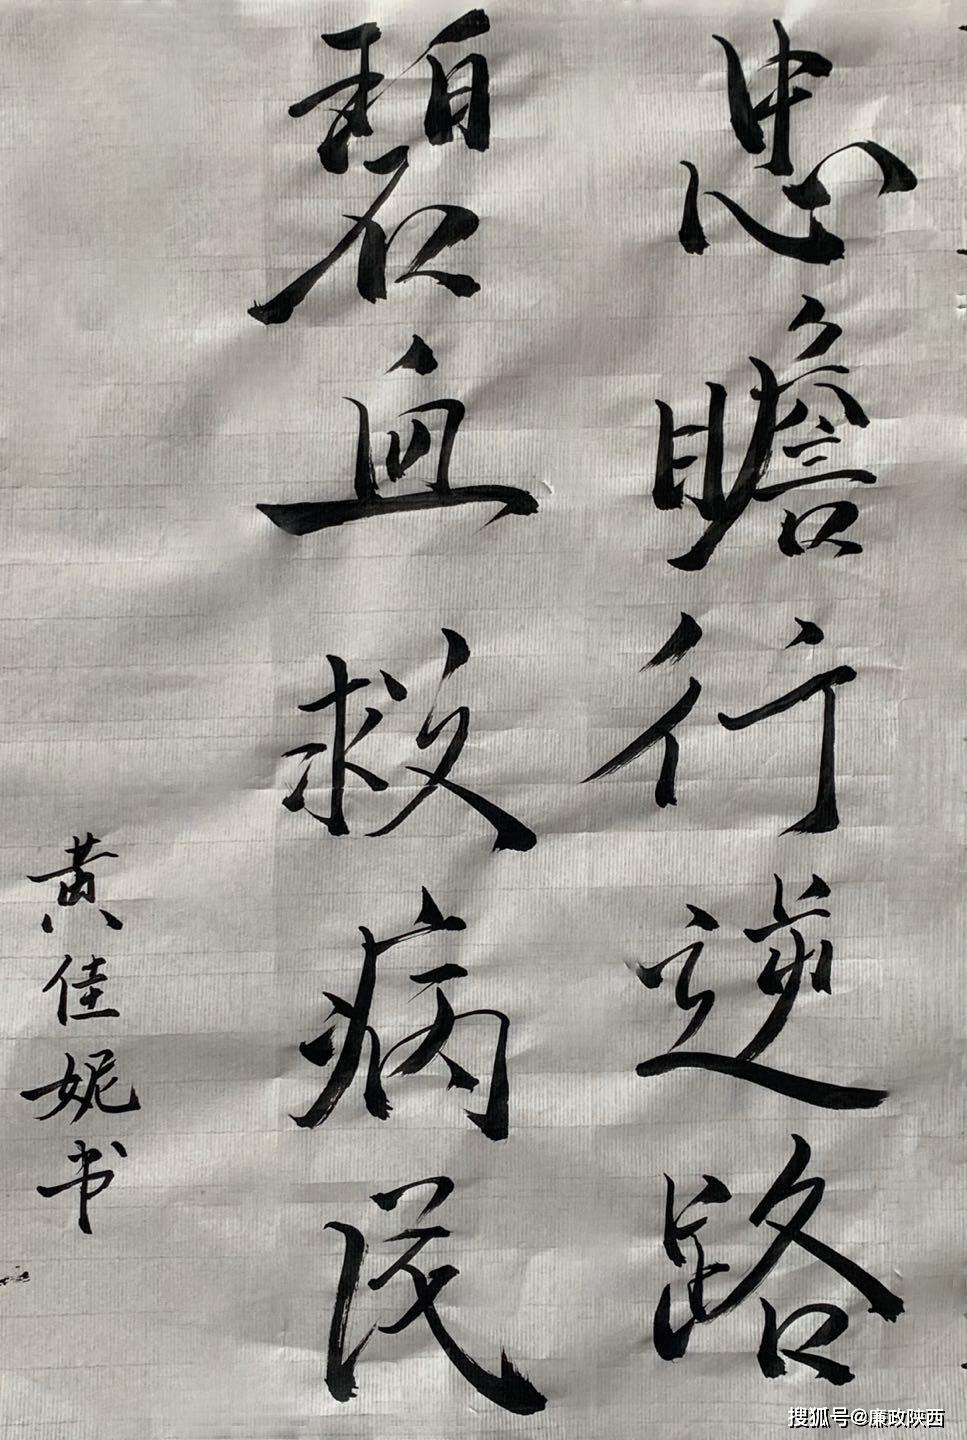 忠瞻行逆路
碧血救病民
黄佳妮书
搜狐号@廉政陕西